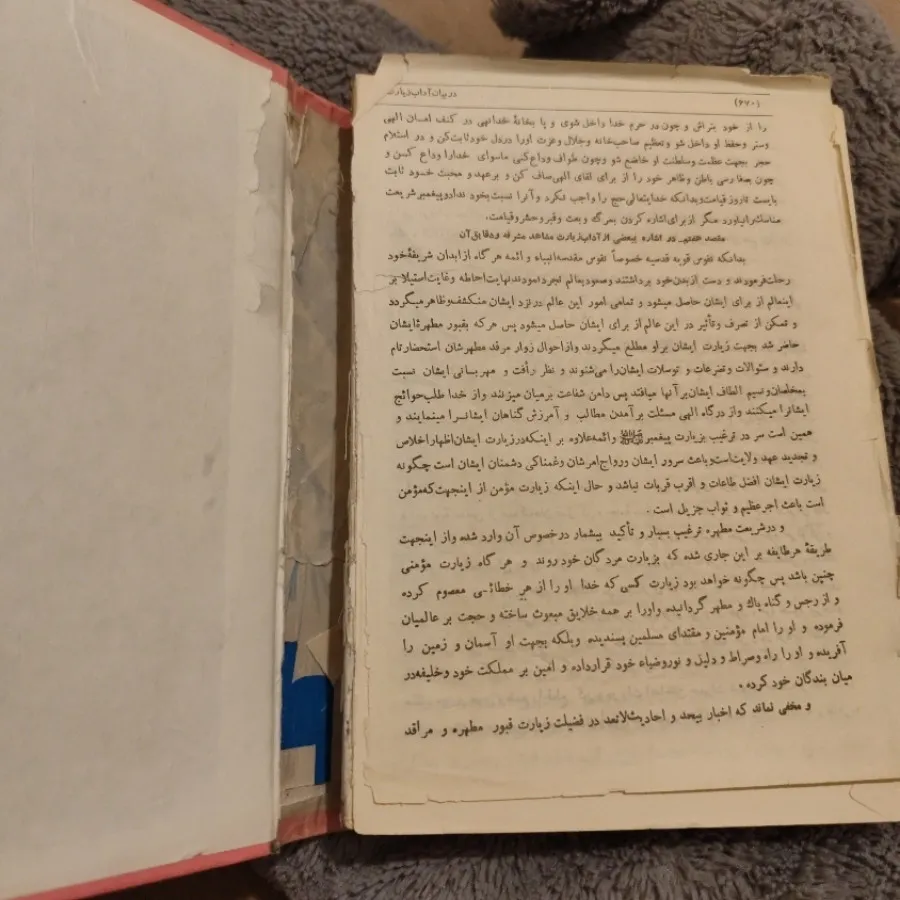 (۶۷۰) در بیان آداب زیارت
را از خود بتراش و چون در حرم خدا داخل شوی و پا بخانهٔ خدا نهی در کنف امان الهی
وستر وحفظ او داخل شو وتعظیم صاحب‌خانه وجلال وعزت اورا دردل خود ثابت کن و در استلام
حجر بجهت عظمت وسلطنت او خاضع شو وچون طواف وداع کنی ماسوای خدارا وداع کن و
چون بصفا رسی باطن وظاهر خود را از برای لقای الهی صاف کن و برعهد و محبت خود ثابت
بایست تاروز قیامت وبدانکه خدایتعالی حج را واجب نکرد و آنرا نسبت بخود نداد و پیغمبر شریعت
مناسک را نیاورد مگر از برای اشاره کردن بمرگ و بعث وقبر وحشر وقیامت.
مقصد هفتم در اشاره ببعضی از آداب زیارت مشاهد مشرفه ودقایق آن
بدانکه نفوس قویه قدسیه خصوصاً نفوس مقدسه انبیاء و ائمه هر گاه از ابدان شریفهٔ خود
رحلت فرمودند و دست از بدن خود برداشتند وصعود بعالم تجرد نمودند نهایت احاطه وغایت استیلا بر
اینعالم از برای ایشان حاصل میشود و تمامی امور این عالم در نزد ایشان منکشف وظاهر میگردد
و تمکن از تصرف وتأثیر در این عالم از برای ایشان حاصل میشود پس هر که بقبور مطهرهٔ ایشان
حاضر شد بجهت زیارت ایشان بر او مطلع میگردند واز احوال زوار مرقد مطهرشان استحضار تام
دارند و سئوالات وتضرعات و توسلات ایشان را می‌شنوند و نظر رأفت و مهربانی ایشان نسبت
بمخلصان ونسیم الطاف ایشان بر آنها میافتد پس دامن شفاعت برمیان میزنند واز خدا طلب حوائج
ایشانرا میکنند واز درگاه الهی مسئلت بر آمدن مطالب و آمرزش گناهان ایشانرا مینمایند و
همین است سر در ترغیب بزیارت پیغمبر ﷺ وائمه علاوه بر اینکه در زیارت ایشان اظهار اخلاص
و تجدید عهد ولایت است و باعث سرور ایشان ورواج امرشان وغمناکی دشمنان ایشان است چگونه
زیارت ایشان افضل طاعات و اقرب قربات نباشد و حال اینکه زیارت مؤمن از اینجهت که مؤمن
است باعث اجر عظیم و ثواب جزیل است.
و در شریعت مطهره ترغیب بسیار و تأکید بیشمار در خصوص آن وارد شده واز اینجهت
طریقهٔ هر طایفه بر این جاری شده که بزیارت مردگان خود روند و هر گاه زیارت مؤمنی
چنین باشد پس چگونه خواهد بود زیارت کسی که خدا او را از هر خطائی معصوم کرده
و از رجس و گناه پاک و مطهر گردانیده واورا بر همه خلایق مبعوث ساخته و حجت بر عالمیان
فرموده و او را امام مؤمنین و مقتدای مسلمین پسندیده وبلکه بجهت او آسمان و زمین را
آفریده و او را راه وصراط و دلیل و نوروضیاء خود قرارداده و امین بر مملکت خود وخلیفه در
میان بندگان خود کرده.
و مخفی نماند که اخبار بیحد و احادیث لاتعد در فضیلت زیارت قبور مطهره و مراقد